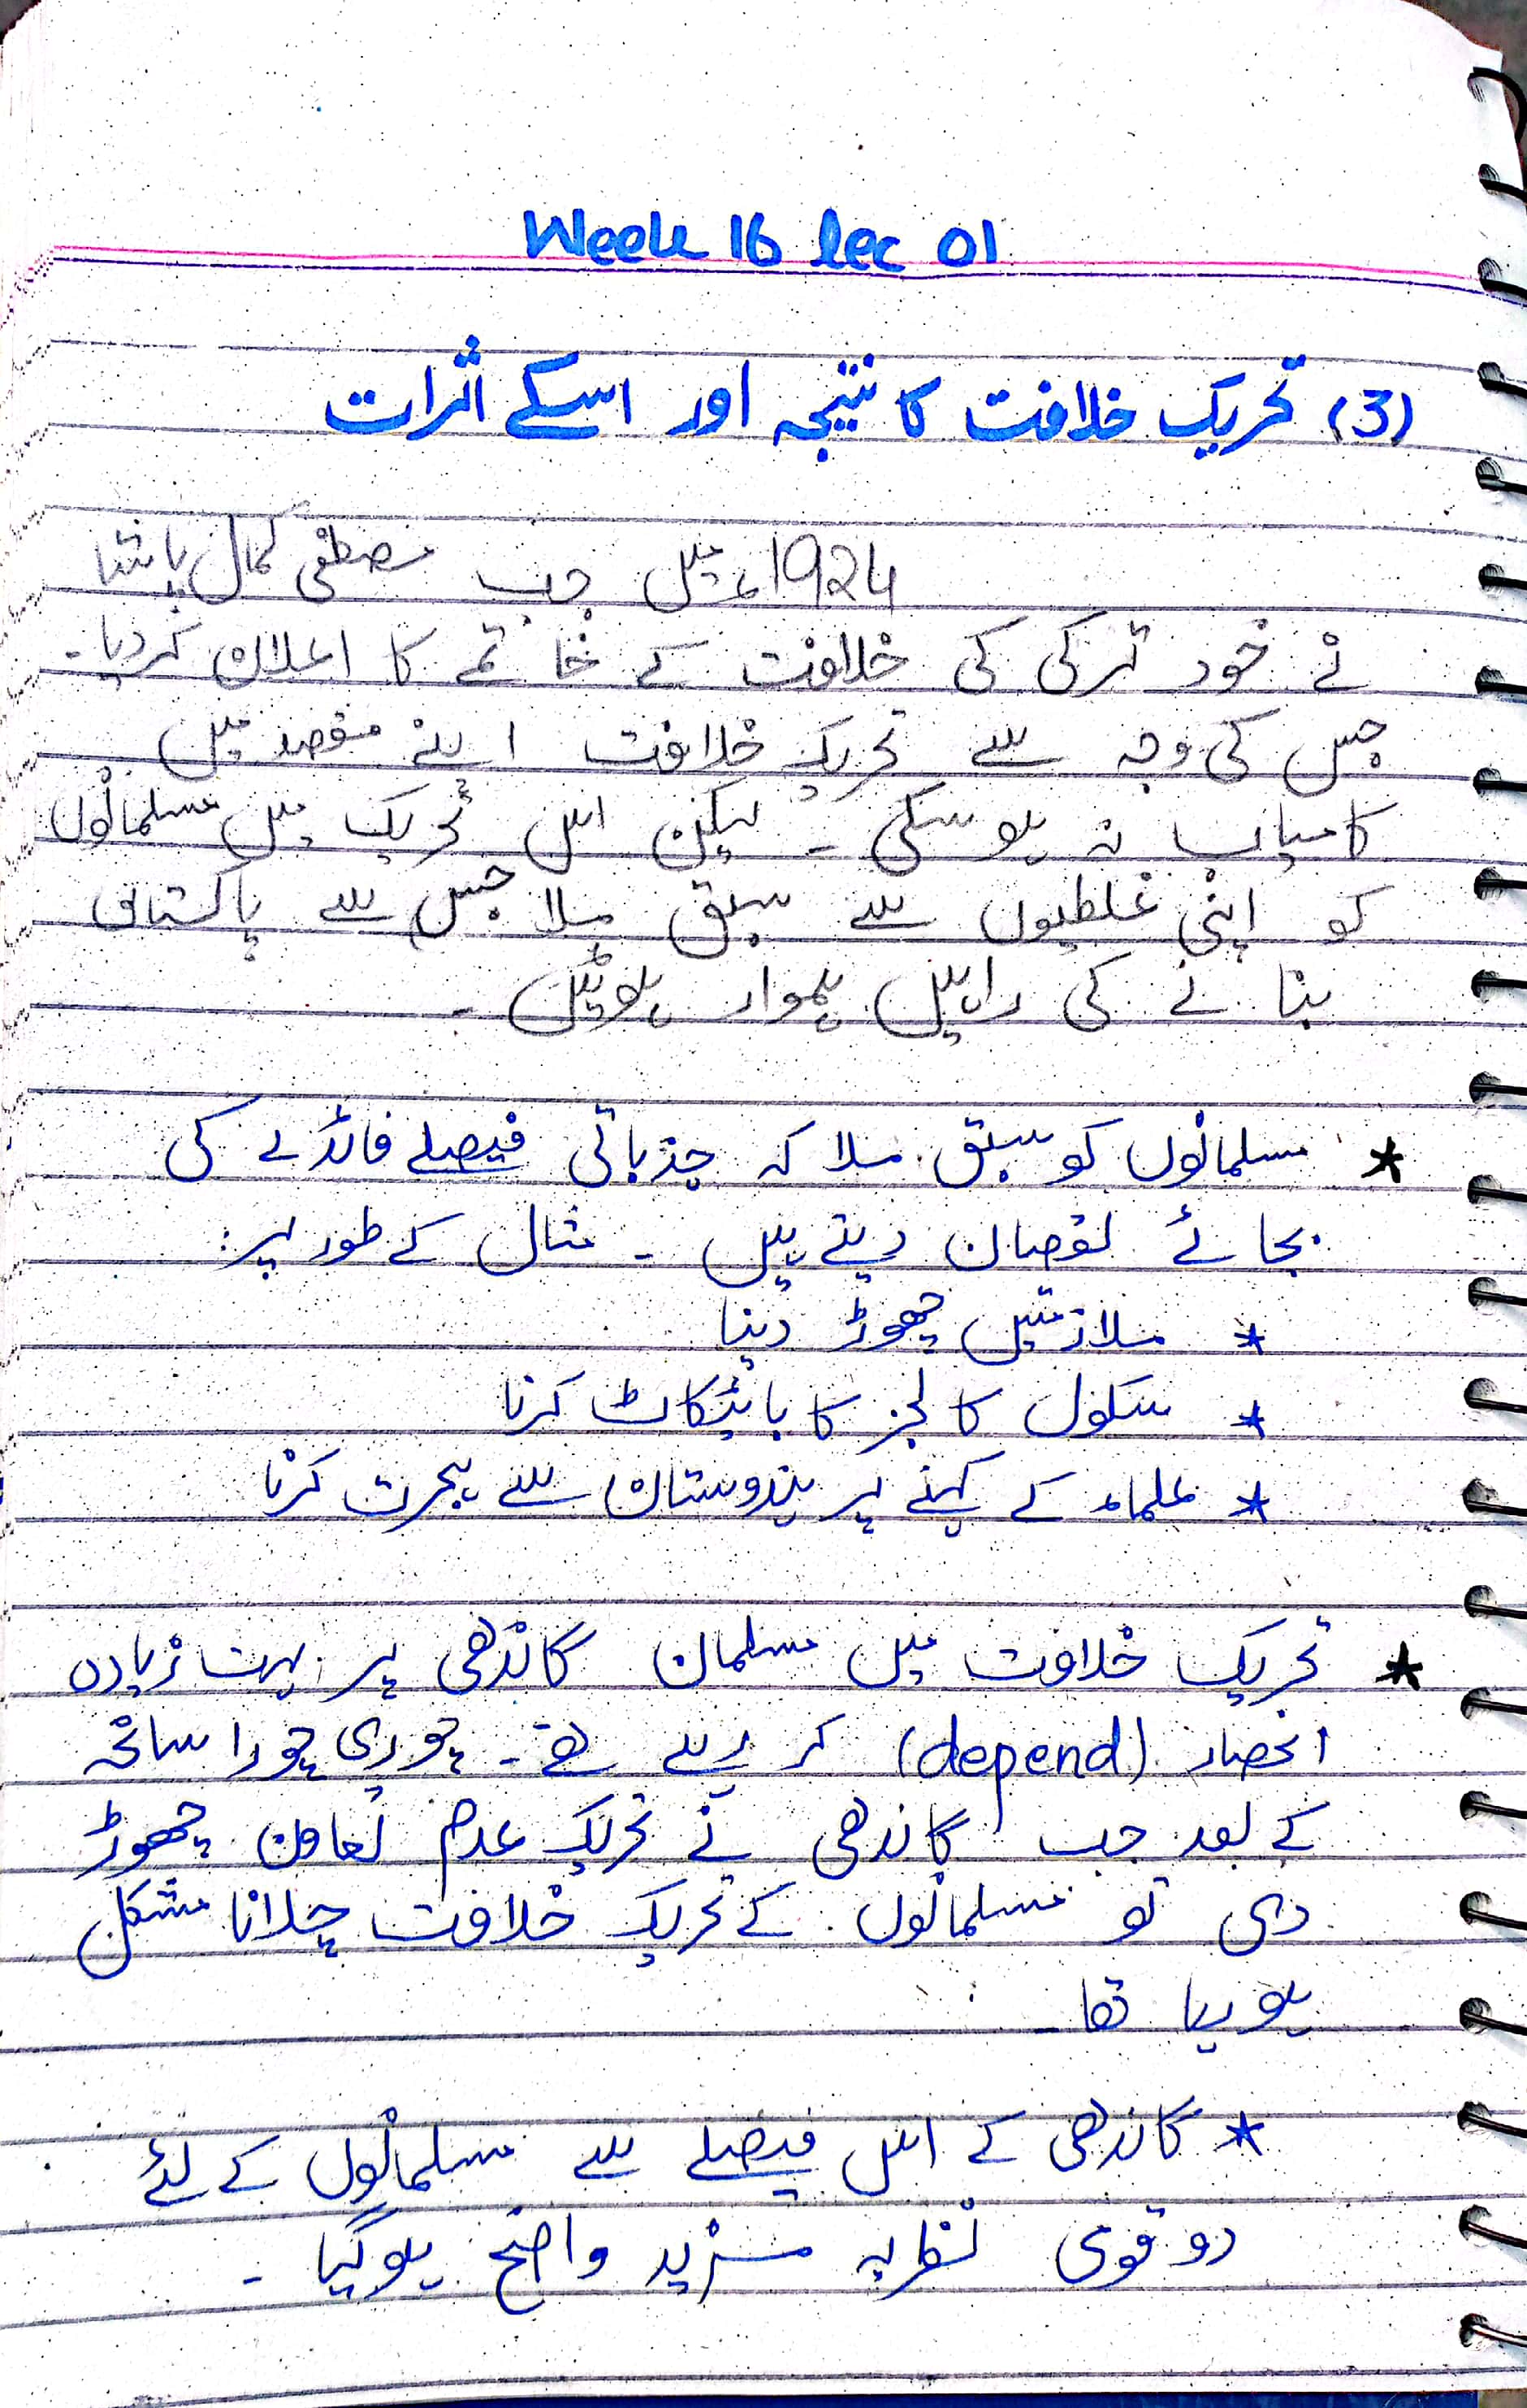 Week 16 lec 01
(3) تحریک خلافت کا نتیجہ اور اسکے اثرات
1924ء میں جب مصطفی کمال پاشا
نے خود ترکی کی خلافت کے خاتمے کا اعلان کردیا۔
جس کی وجہ سے تحریک خلافت اپنے مقصد میں
کامیاب نہ ہو سکی ۔ لیکن اس تحریک میں مسلمانوں
کو اپنی غلطیوں سے سبق ملا جس سے پاکستان
بنانے کی راہیں ہموار ہوئیں ۔
* مسلمانوں کو سبق ملا کہ جذباتی فیصلے فائدے کی
بجائے نقصان دیتے ہیں ۔ مثال کے طور پر:
* ملازمتیں چھوڑ دینا
* سکول کالجز کا بائیکاٹ کرنا
* علماء کے کہنے پر ہندوستان سے ہجرت کرنا
* تحریک خلافت میں مسلمان گاندھی پر بہت زیادہ
انحصار (depend) کر رہے تھے۔ چوری چورا سانحہ
کے بعد جب گاندھی نے تحریک عدم تعاون چھوڑ
دی تو مسلمانوں کے تحریک خلافت چلانا مشکل
ہو رہا تھا ۔
* گاندھی کے اس فیصلے سے مسلمانوں کے لئے
دو قومی نظریہ مزید واضح ہوگیا ۔